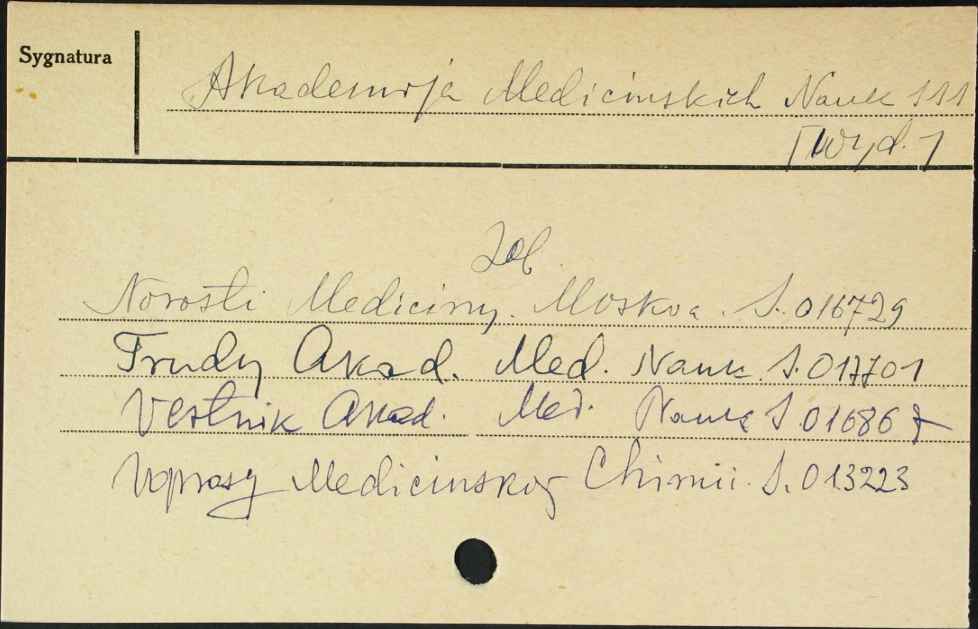 Sygnatura
Akademija Medicinskich Nauk
[Wyd.]
Zob.
Novosti Mediciny. Moskva. S. 016729
Trudy Akad. Med. Nauk. S. 017701
Vestnik Akad. Med. Nauk S. 016867
Voprosy Medicinskoj Chimii. S. 013223